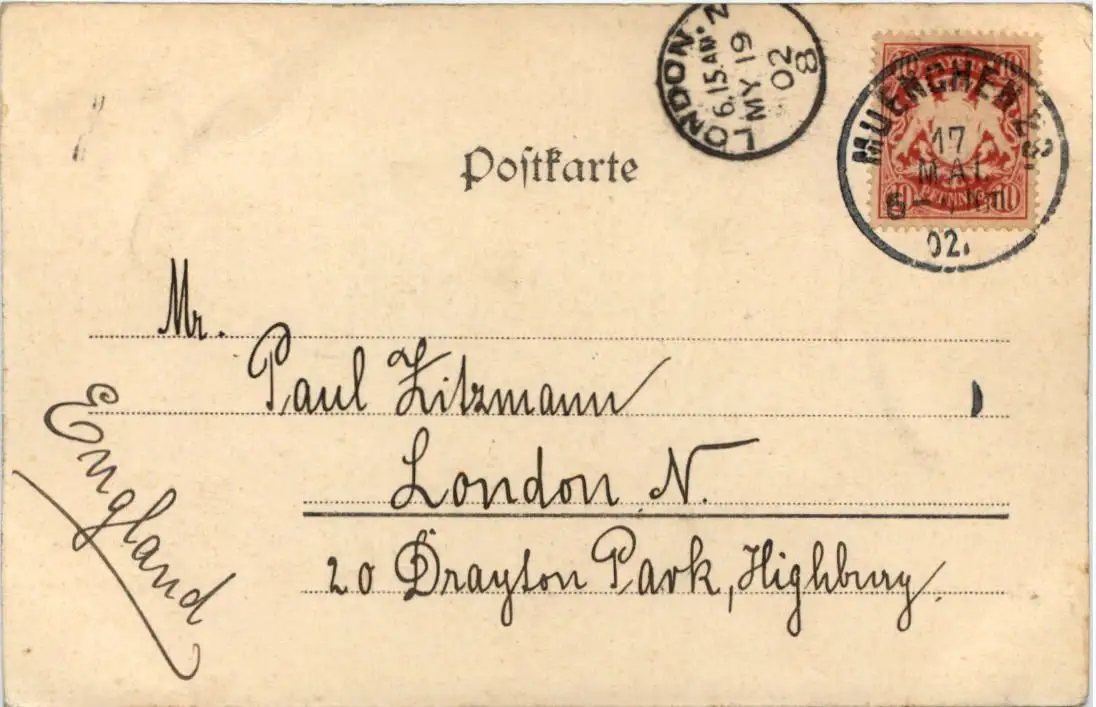 LONDON. N
6.15.AM.
MY 19
02
8
MUENCHEN
17
MAI.
02.
10 10
10 PFENNIG 10
Poſtkarte
Mr.
Paul Zitzmann
London N.
20 Drayton Park, Highbury.
England